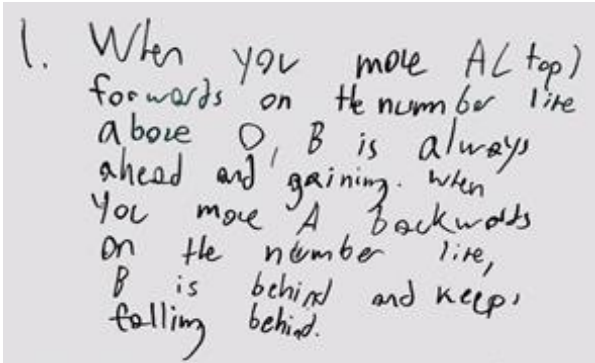 1. When you move A( top)
forwards on the number line
above 0, B is always
ahead and gaining. when
you move A backwards
on the number line,
B is behind and keeps
falling behind.